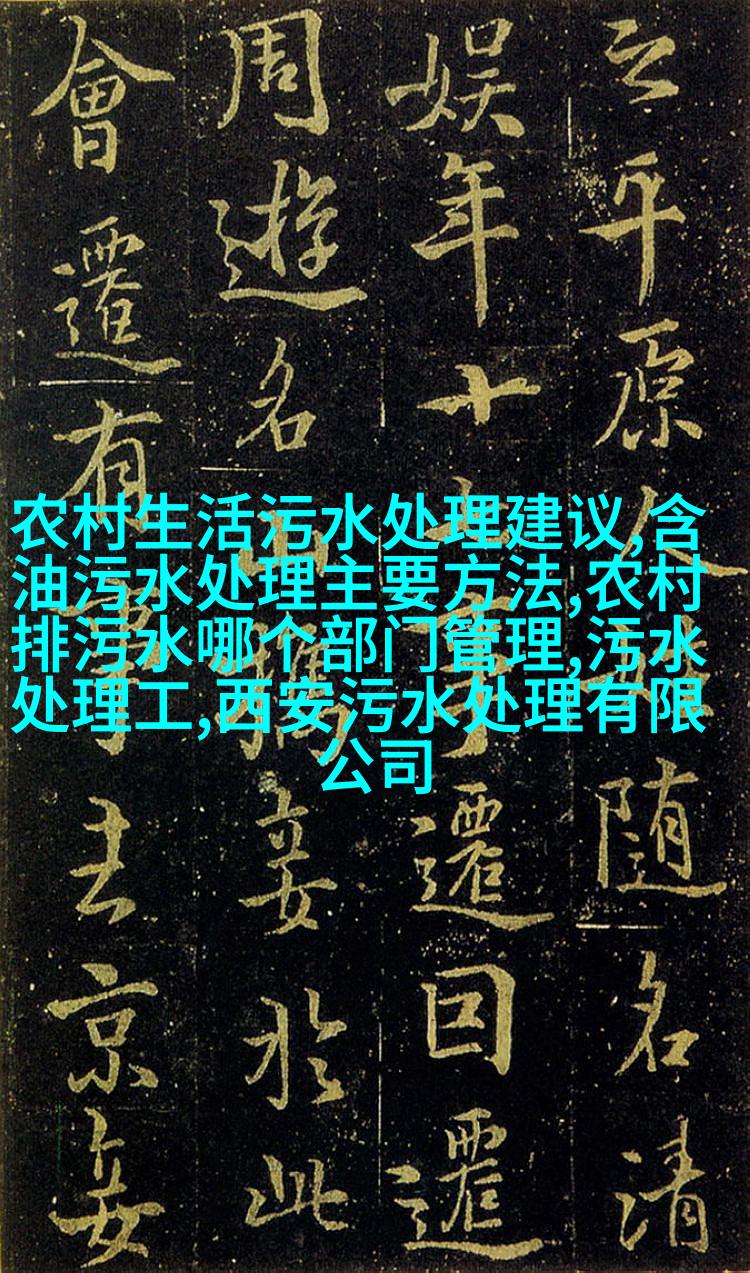 农村生活污水处理建议,含
油污水处理主要方法,农村
排污水哪个部门管理,污水
处理工,西安污水处理有限
公司
之平原人随名清
娱年十遷因遷
周遊名妾於此
會遷有京妾